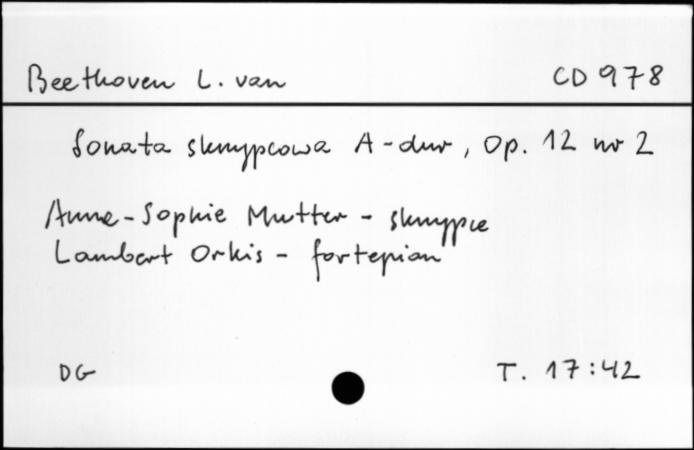 Beethoven L. van CD 978
Sonata skrzypcowa A-dur, Op. 12 nr 2
Anne-Sophie Mutter - skrzypce
Lambert Orkis - fortepian
DG T. 17:42